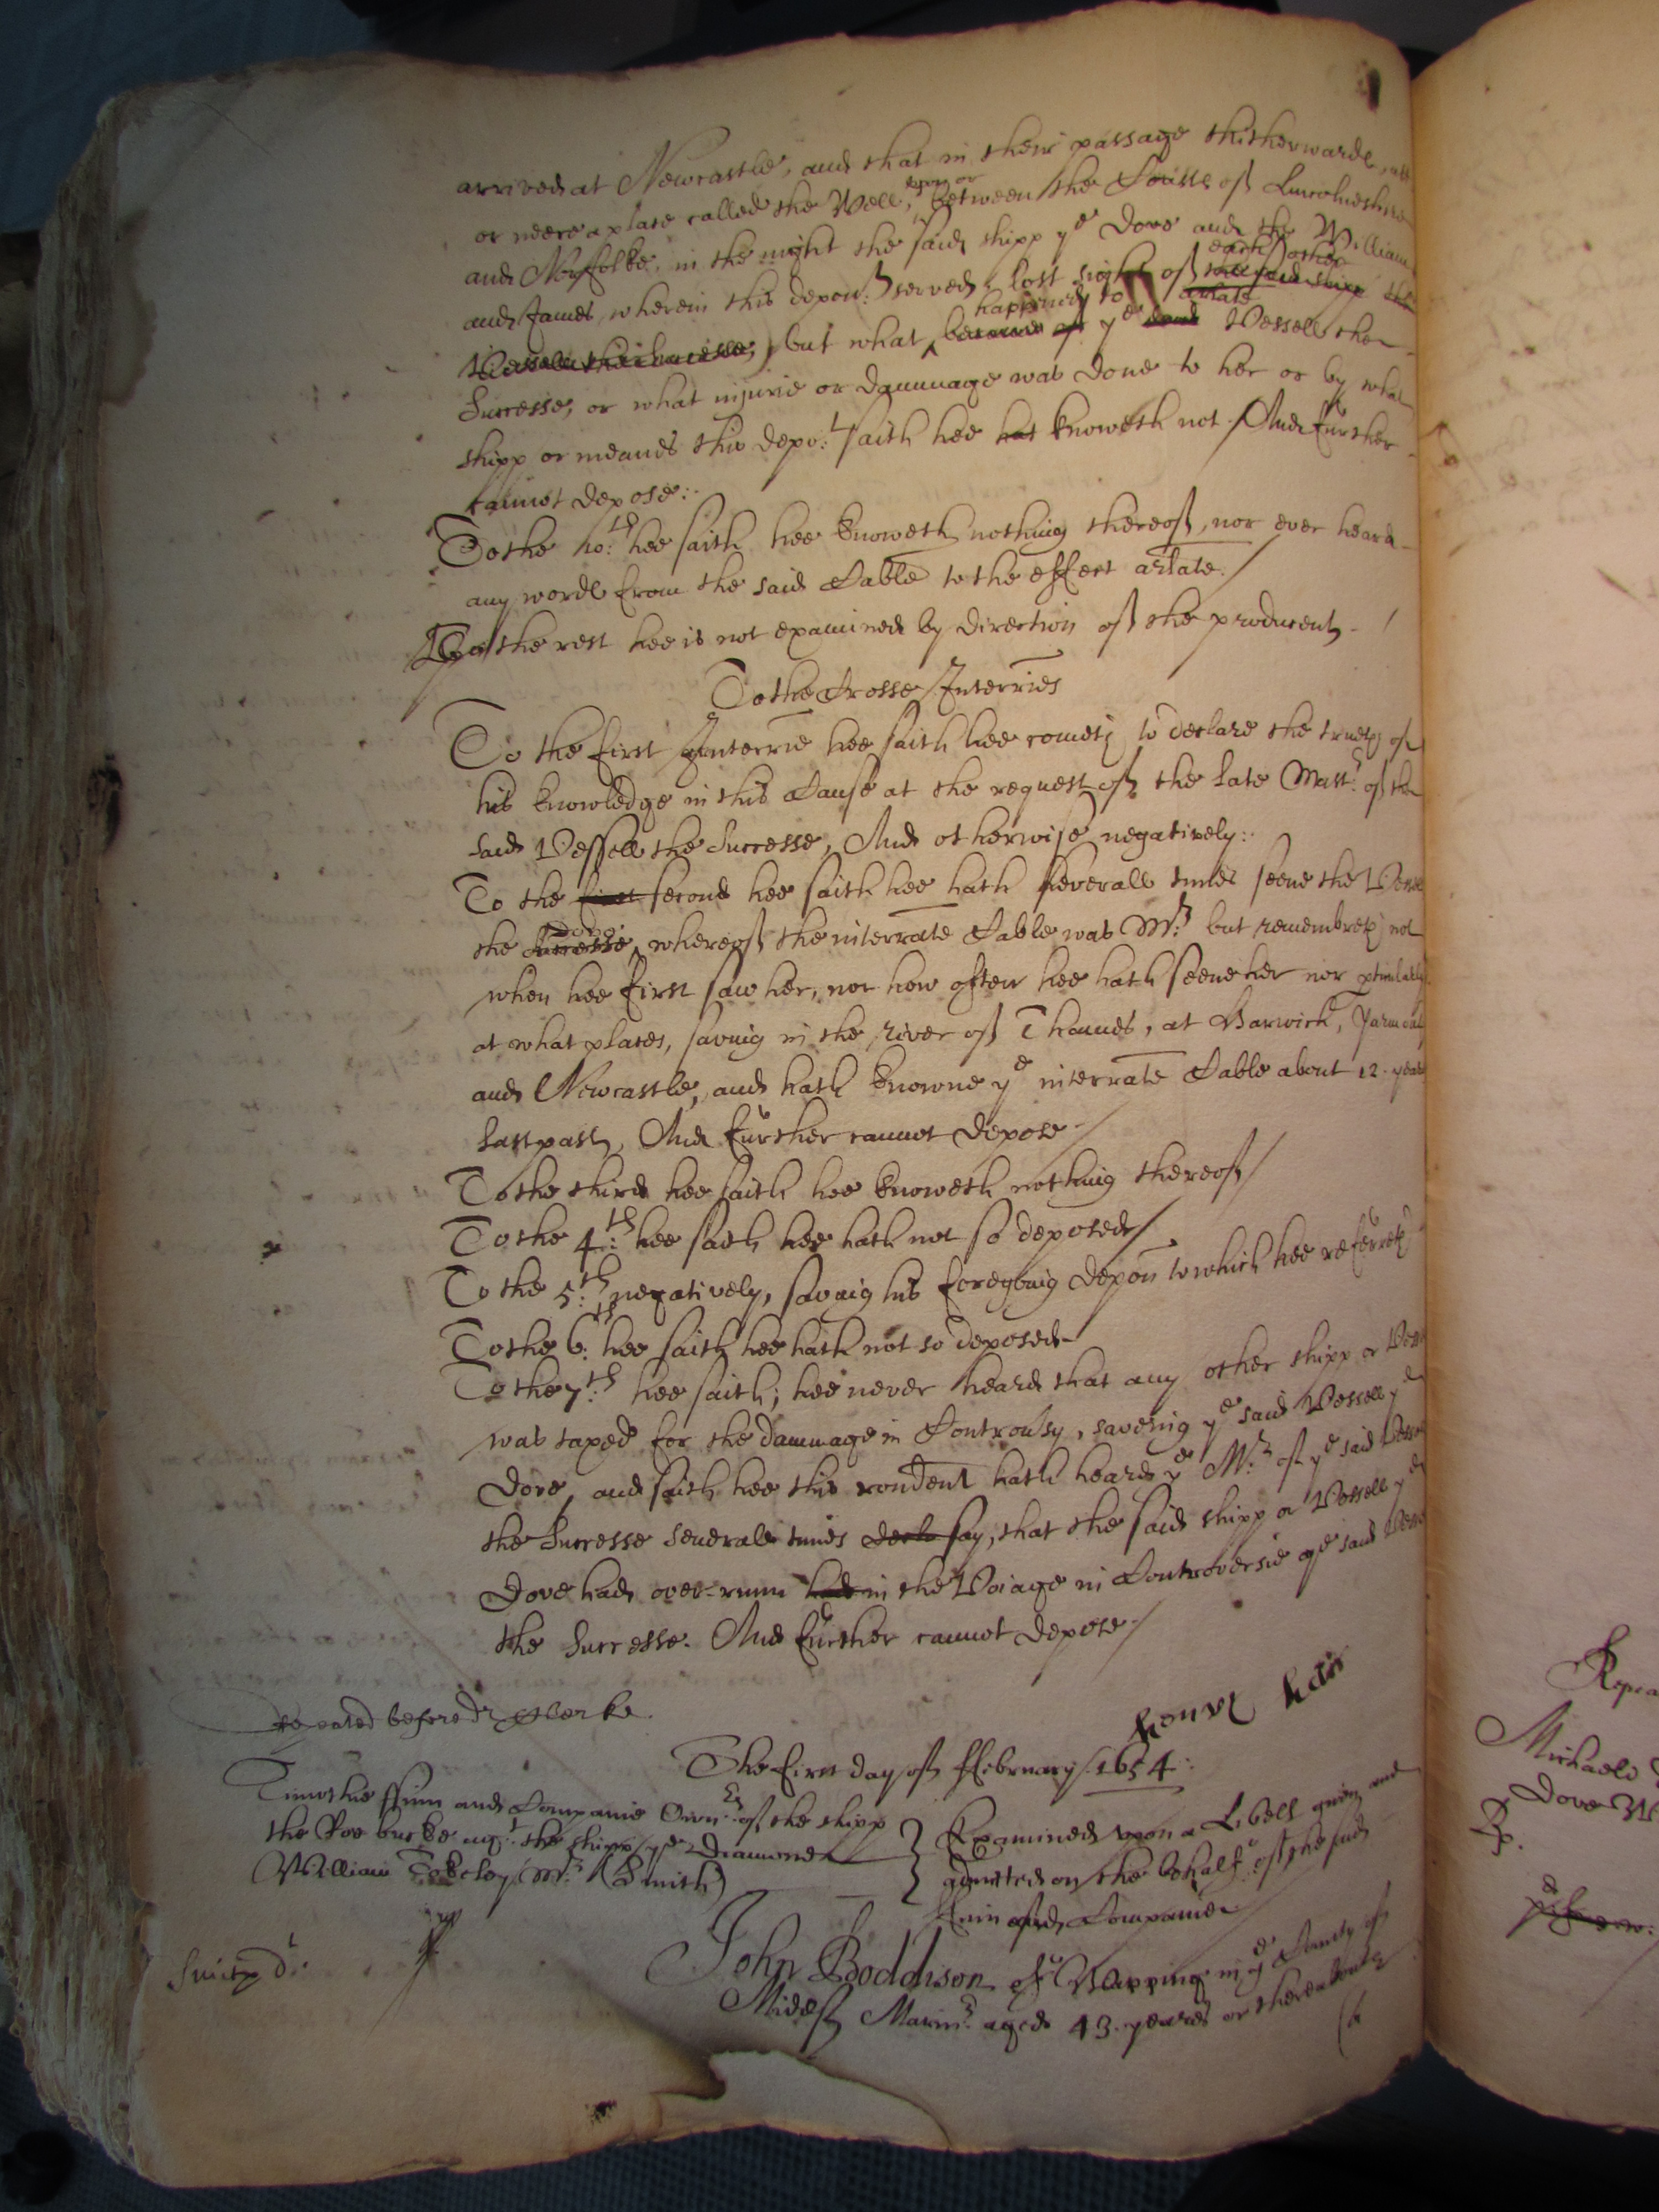 arrived at Newcastle, and that in their passage thitherwards, att
or neere a place called the Well, upon or between the Coasts of Lincolneshire
and Norfolke, in the night the said shipp ye Dove and the William
and James, wherein this depont served, lost sight of each other the said shipp the
Vessell the Successe, but what happened to became of ye said arlate Vessell the
Successe, or what injurie or dammage was done to her or by what
shipp or meanes this depo:t saith hee hat knoweth not. And further
cannot depose:.
To the 10:th hee saith hee knoweth nothing thereof, nor ever heard
any words from the said Cable to the effect arlate.
To the rest hee is not examined by direction of the producent.
To the Crosse Interries
To the first Interrie hee saith hee cometh to declare the trueth of
his knowledge in this Cause at the request of the late Mast:r of the
said Vessell the Successe, And otherwise negatively:.
To the first second hee saith hee hath severall times seene the Vessell
the Successe Dove, whereof the interrate Cable was Mr: but remembreth not
when hee first saw her, nor how often hee hath seene her nor pticularly
at what places, saving in the river of Thames, at Harwich, Yarmouth
and Newcastle, and hath knowne ye interrate Cable about 12. yeares
last past, And further cannot depose
To the third hee saith hee knoweth nothing thereof
To the 4:th hee saith hee hath not so deposed
To the 5:th negatively, saving his foregoing depon to which hee referreth
To the 6:th hee saith hee hath not so deposed
To the 7:th hee saith, hee never heard that any other shipp or Vessell
was taxed for the dammage in Controv'sy, saveing ye said Vessell ye
Dove, and saith hee this rondent hath heard ye Mr: of ye said Vessell
the Successe severall times decla say, that the said shipp or Vessell ye
Dove had over-runn had in the Voiage in Controversie ye said Vessell
the Successe. And further cannot depose
Repeated before dr Clerke.
The first day of ffebruary 1654:
Timothie ffinn and Companie Own:rs of the shipp
the Roe bucke ag:t the shipp ye Diamond
William Mr: (Smith)
Examined upon a Libell given and
admitted on the behalfe of the said
ffinn and Companie
Smith dt
John Boddison of Wapping in ye County of
Midd:x Marin:r aged 43. yeares or thereabouts
Repea
Michaele
Dove
Rp.